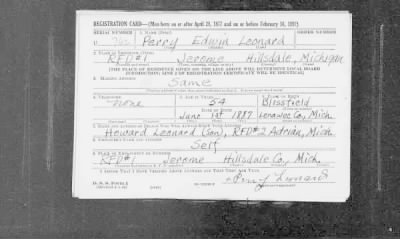 REGISTRATION CARD—(Men born on or after April 28, 1877 and on or before February 16, 1897)
SERIAL NUMBER 1. NAME (Print) ORDER NUMBER
U Perry Edwin Leonard
RFD#1 Jerome Hillsdale, Michigan
[THE PLACE OF RESIDENCE GIVEN ON THE LINE ABOVE WILL DETERMINE LOCAL BOARD
JURISDICTION; LINE 2 OF REGISTRATION CERTIFICATE WILL BE IDENTICAL]
3. MAILING ADDRESS
Same
4. TELEPHONE 5. AGE IN YEARS 6. PLACE OF BIRTH
none 54 Blissfield
DATE OF BIRTH
June 1st 1887 Lenawee Co, Mich.
7. NAME AND ADDRESS OF PERSON WHO WILL ALWAYS KNOW YOUR ADDRESS
Howard Leonard (Son), RFD#2 Adrian, Mich.
8. EMPLOYER'S NAME AND ADDRESS
Self
9. PLACE OF EMPLOYMENT OR BUSINESS
RFD#1 Jerome Hillsdale Co, Mich.
I AFFIRM THAT I HAVE VERIFIED ABOVE ANSWERS AND THAT THEY ARE TRUE.
D. S. S. Form 1
Perry Leonard